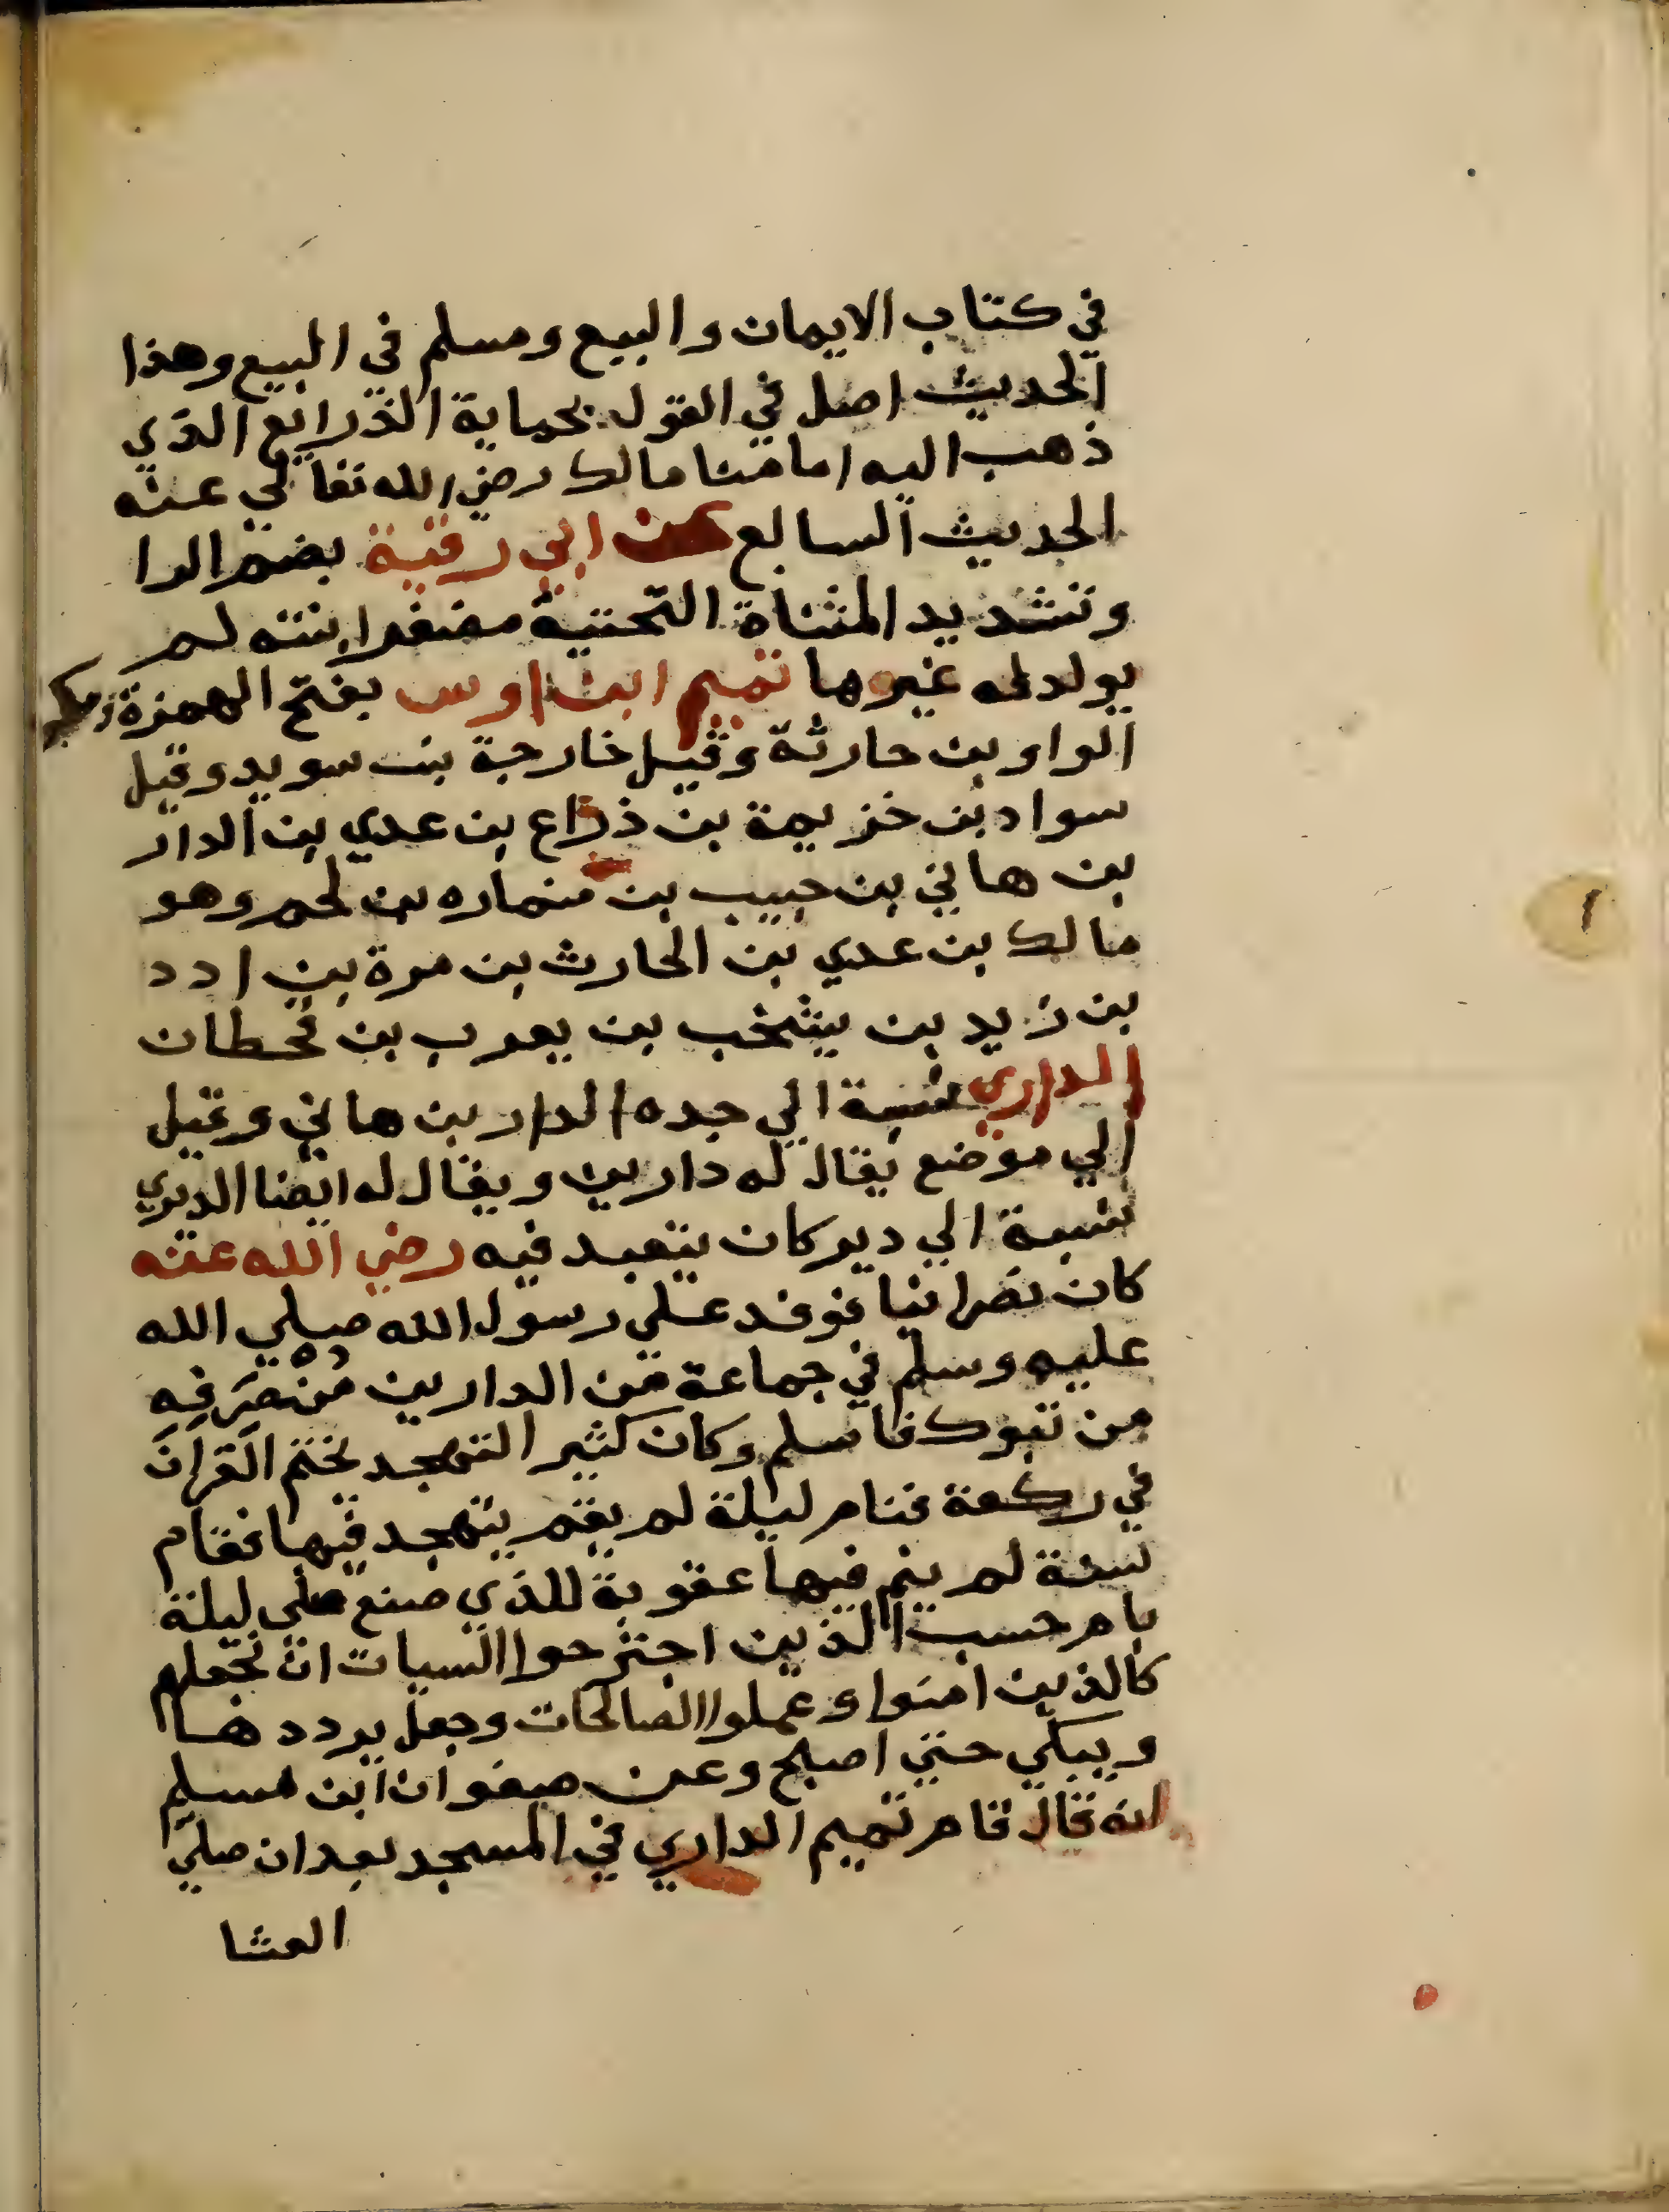 في كتاب الايمان والبيع ومسلم في البيع وهذا
الحديث اصل في القول بحماية الذرايع الذي
ذهب اليه امامنا مالك رضي الله تعالي عنه
الحديث السابع عن ابي رقية بضم الرا
وتشديد المثناة التحتية مصغر ابنته لم
يولد له غيرها تميم ابن اوس بفتح الهمزة
الواو بن حارثة وقيل خارجة بن سويد وقيل
سواد بن خزيمة بن ذراع بن عدي بن الدار
بن هاني بن حبيب بن نماره بن لخم وهو
مالك بن عدي بن الحارث بن مرة بن ادد
بن زيد بن يشخب بن يعرب بن قحطان
الداري نسبة الي جده الدار بن هاني وقيل
الي موضع يقال له دارين ويقال له ايضا الديري
نسبة الي دير كان يتعبد فيه رضي الله عنه
كان نصرانيا فوفد علي رسول الله صلي الله
عليه وسلم في جماعة من الدارين مُنْصَرَفِهِ
من تبوك فاسلم وكان كثير التهجد يختم القرآن
في ركعة فنام ليلة لم يقم يتهجد فيها فقام
سنة لم ينم فيها عقوبة للذي صنع صلي ليلة
بام حسب الذين اجترحوا السيات ان نجعلهم
كالذين امنوا وعملوا الصالحات وجعل يرددها
ويبكي حتي اصبح وعن صفوان ابن مسلم
انه قال قام تميم الداري في المسجد بعد ان صلي
العشا